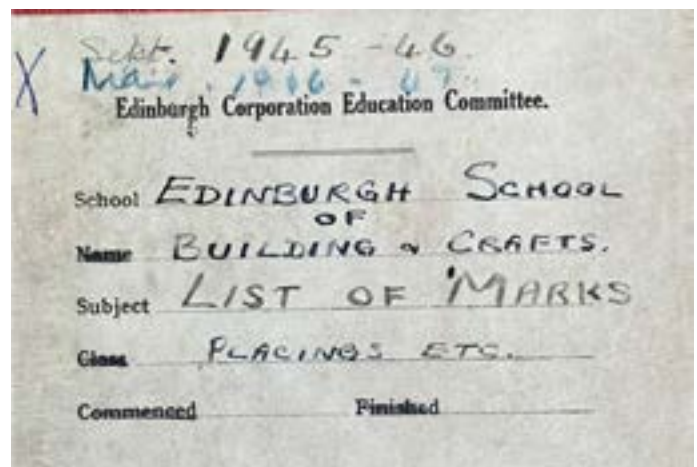 Sept. 1945-46
Mar. 1946-47
X
Edinburgh Corporation Education Committee.
School EDINBURGH SCHOOL
OF
Name BUILDING & CRAFTS.
Subject LIST OF MARKS
Class PLACINGS ETC.
Commenced Finished